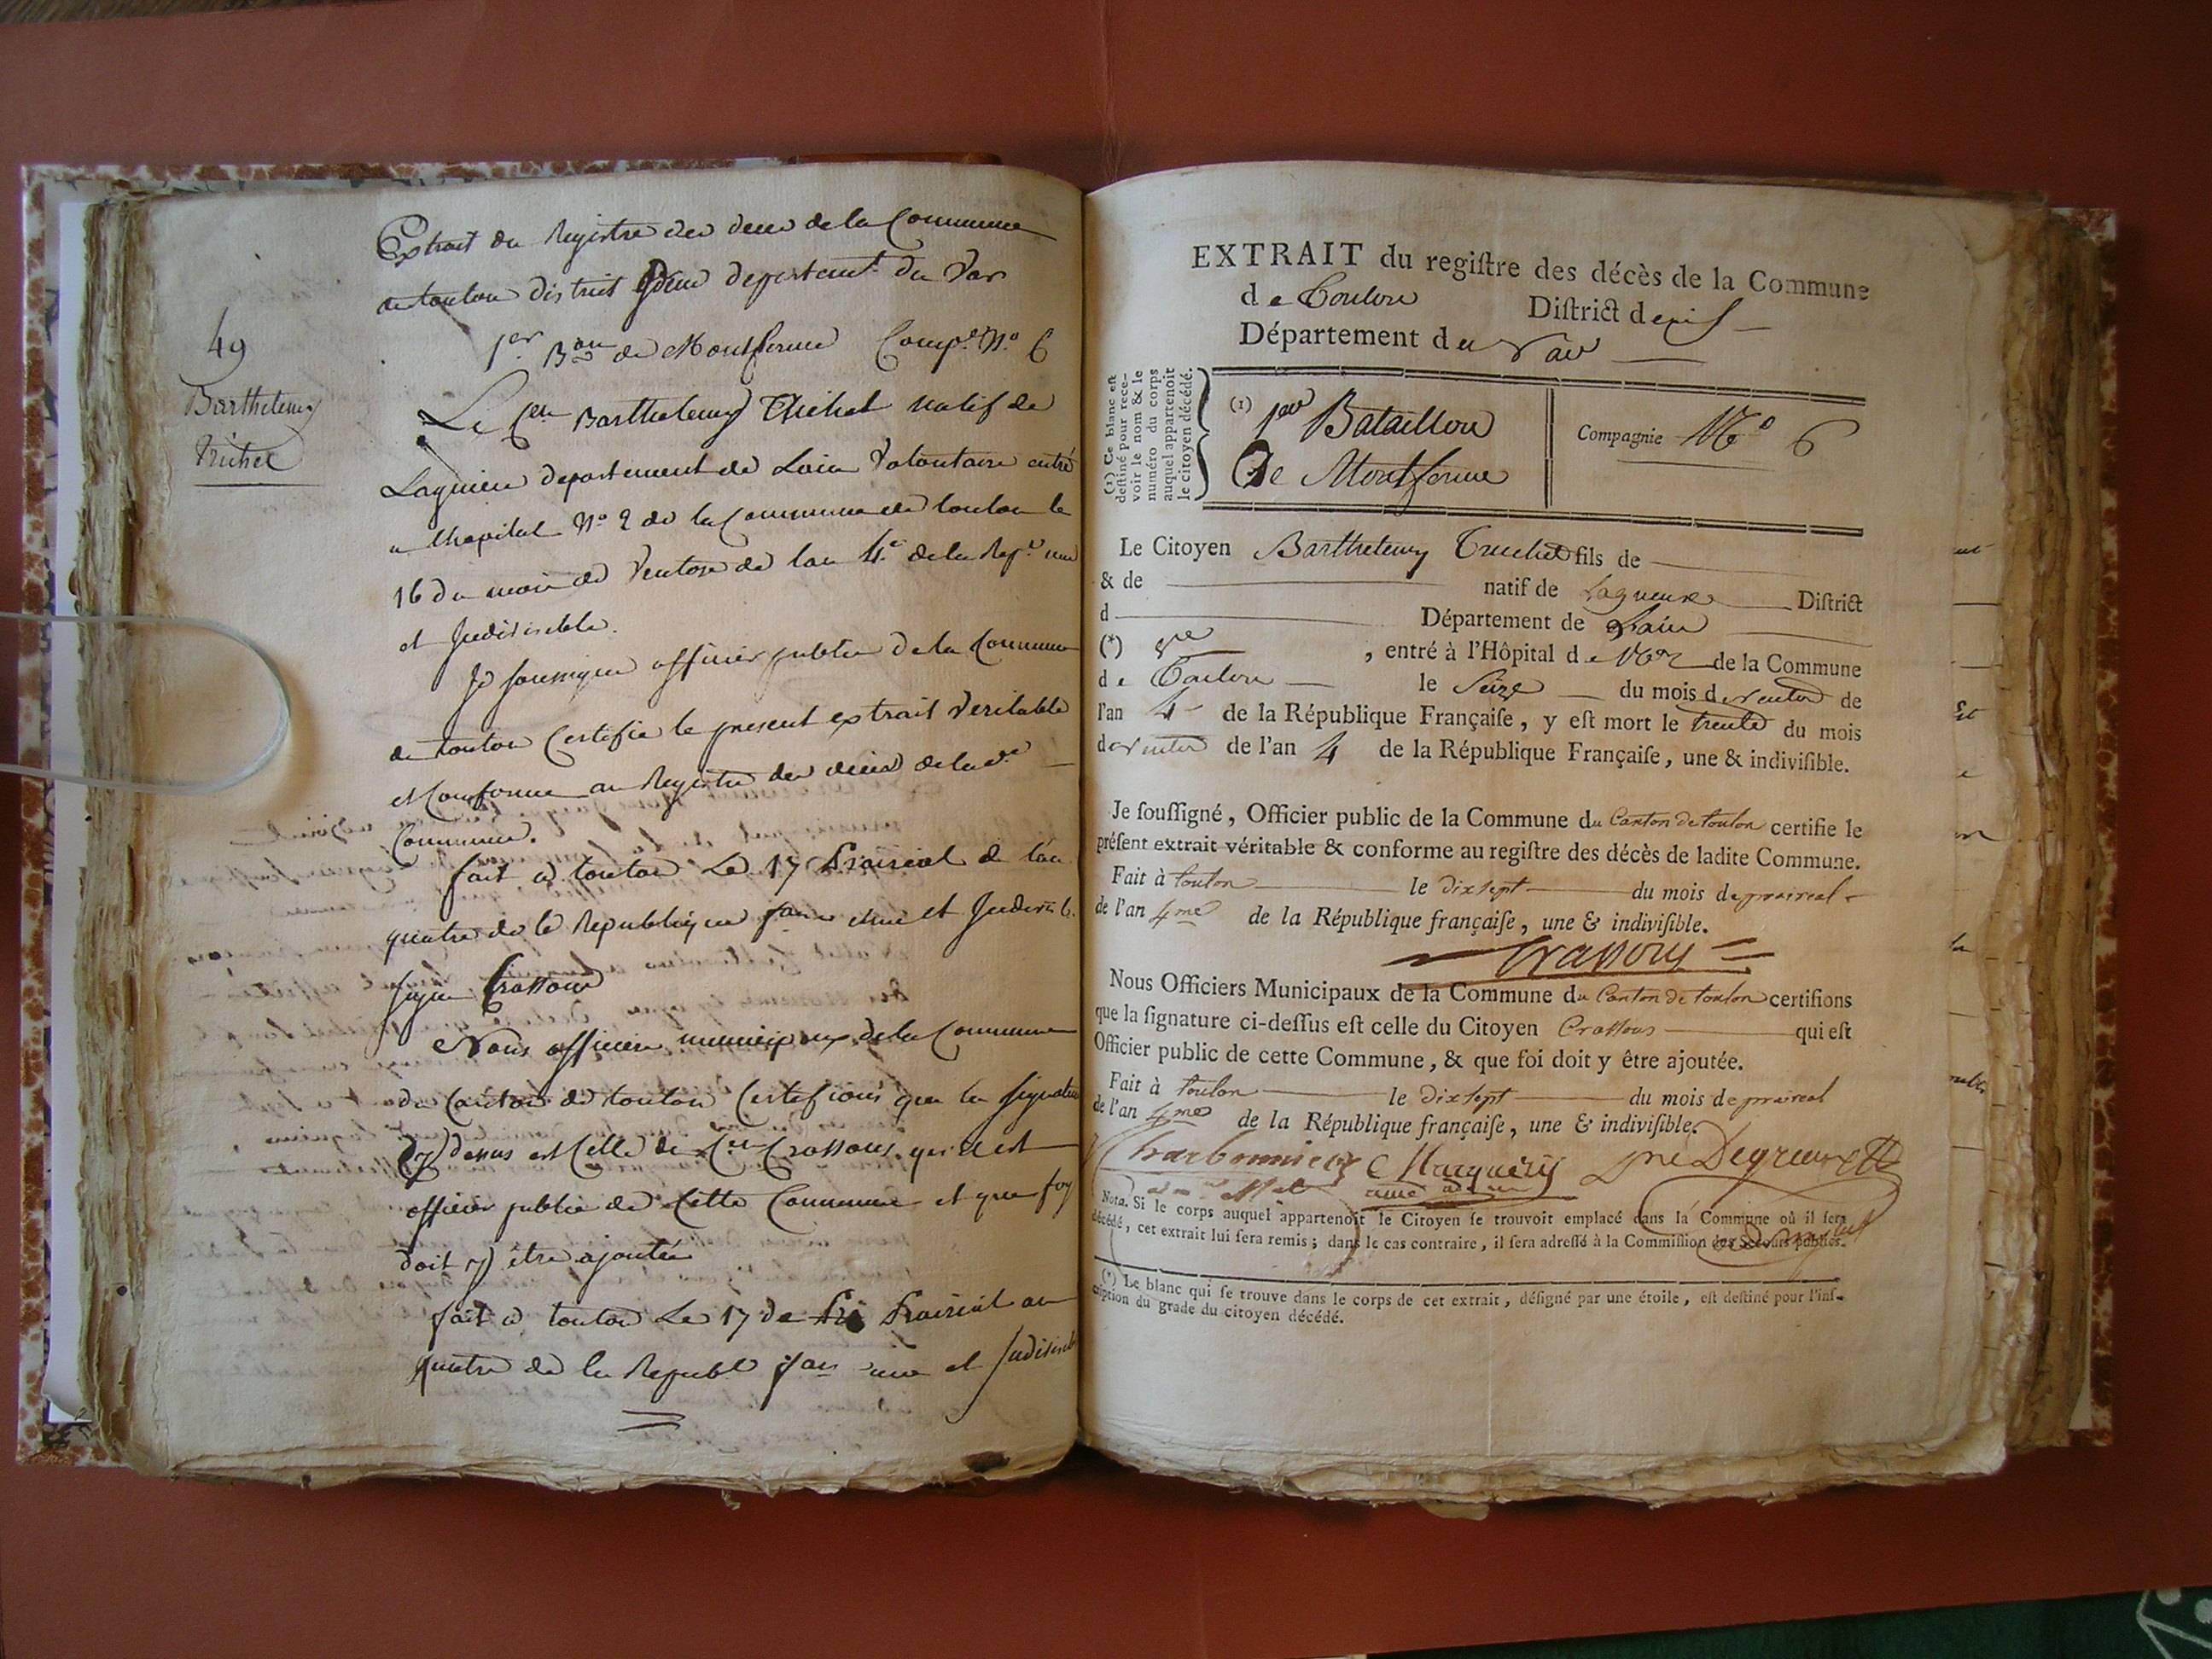 49
Barthelemy
Trichet
Extrait du Registre des deces de la Commune
de toulon district Idem departemt. du Var
1er. Bon de Montferme Compe. N.o 6
Le Cen Barthelemy Thichet natif de
Lagnieu departement de Lain Volontaire entré
a lhopital No 2 de la Commune de toulon le
16 du mois de Ventose de lan 4.e de la Rep.e une
et Indivisible.
Je soussigne officier public de la Commune
de toulon Certifie le present extrait Veritable
et Conforme au Registre des deces de lad.te
Commune.
fait a toulon Le 17 Prairial de lan
quatre de la Republique fane une et Indivisib.
signe Crassous
Nous officiers municipaux de la Commune
du Canton de toulon Certifions que la signature
Cy dessus est Celle du Cen Crassous qui est
officier public de Cette Commune et que foy
doit y être ajoutée
fait a toulon Le 17 de Prairial an
quatre de la Republ fan une et Indivisib
EXTRAIT du regiſtre des décès de la Commune
de Toulon Diſtrict de
Département du Var
(1) Ce blanc eſt
deſtiné pour rece-
voir le nom & le
numéro du corps
auquel appartenoit
le citoyen décédé.
(1) 1er Bataillon
De Montferme
Compagnie N.o 6
Le Citoyen Barthelemy Truchet fils de
& de natif de Lagneux Diſtrict
d Département de Lain
(*) , entré à l'Hôpital de No 2 de la Commune
de Toulon le Seize du mois de Ventose de
l'an 4 de la République Françaiſe, y eſt mort le trente du mois
de Ventose de l'an 4 de la République Françaiſe, une & indiviſible.
Je ſouſſigné, Officier public de la Commune du Canton de toulon certifie le
préſent extrait véritable & conforme au regiſtre des décès de ladite Commune.
Fait à toulon le dix sept du mois de praireal
de l'an 4me de la République françaiſe, une & indiviſible.
Crassous
Nous Officiers Municipaux de la Commune du Canton de toulon certifions
que la ſignature ci-deſſus eſt celle du Citoyen Crassous qui eſt
Officier public de cette Commune, & que foi doit y être ajoutée.
Fait à toulon le dix sept du mois de praireal
de l'an 4me de la République françaiſe, une & indiviſible.
Charbonnier
Nota. Si le corps auquel appartenoit le Citoyen ſe trouvoit emplacé dans la Commune où il ſera
décédé, cet extrait lui ſera remis; dans le cas contraire, il ſera adreſſé à la Commiſſion des Secours publics.
(*) Le blanc qui ſe trouve dans le corps de cet extrait, déſigné par une étoile, eſt deſtiné pour l'inſ-
cription du grade du citoyen décédé.